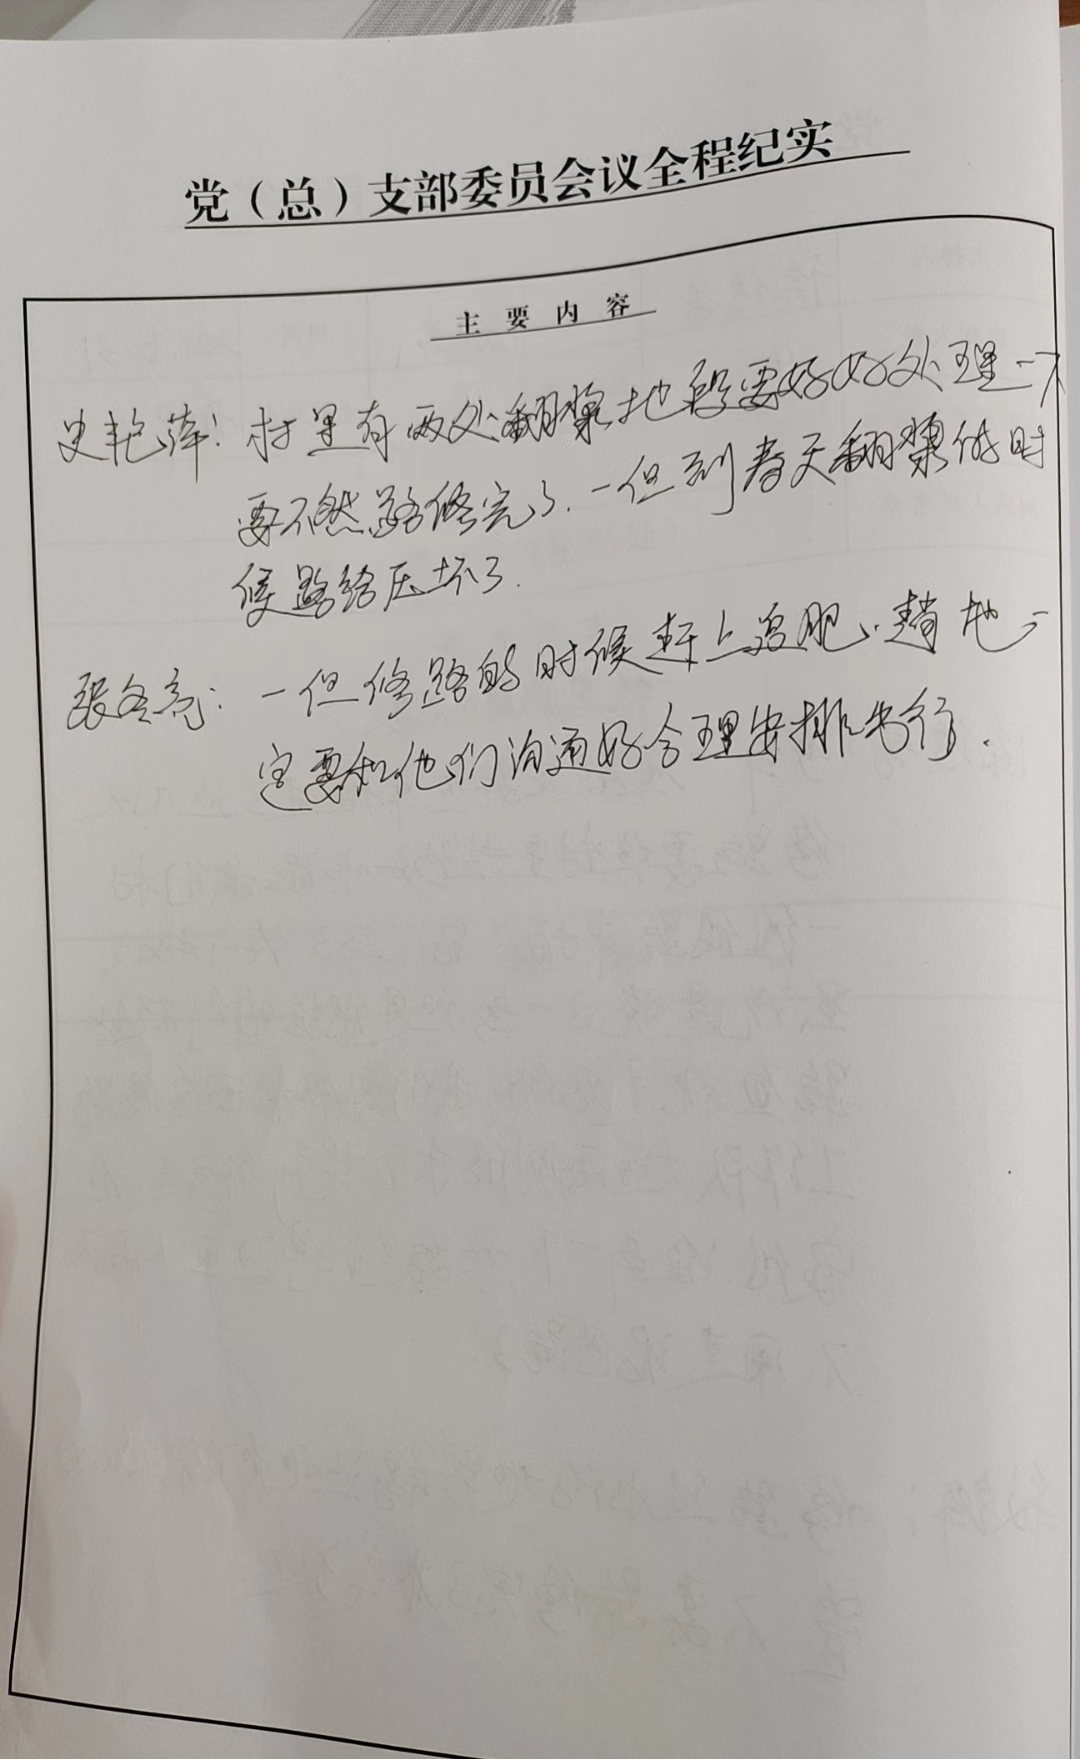 党（总）支部委员会议全程纪实
主要内容
史艳萍：村里有两处翻浆地段要好好处理一下
要不然路修完了.一但到春天翻浆的时
候路给压坏了.
张冬亮：一但修路的时候赶上追肥.趟地一
定要和他们沟通好合理安排先行.